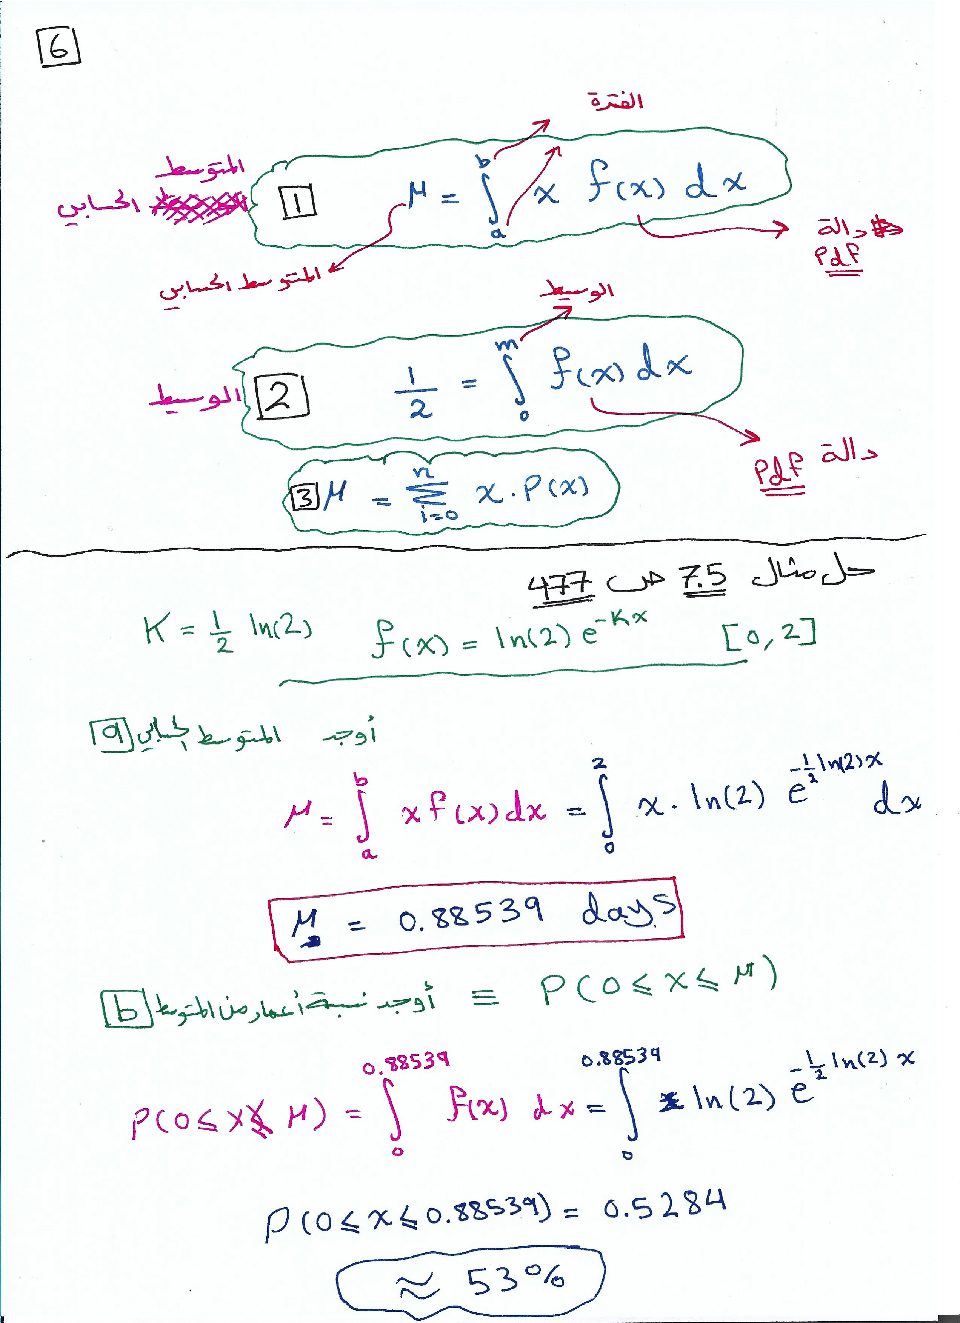 6
الفترة
المتوسط الحسابي 1 μ = ∫_a^b x f(x) dx
دالة
Pdf
المتوسط الحسابي
الوسيط
الوسيط 2 1/2 = ∫_0^m f(x) dx
دالة Pdf
3 μ = Σ_{i=0}^n x . P(x)
حل مثال 7.5 ص 477
K = 1/2 ln(2) f(x) = ln(2) e^{-Kx} [0,2]
a أوجد المتوسط الحسابي
μ = ∫_a^b x f(x) dx = ∫_0^2 x . ln(2) e^{-1/2 ln(2) x} dx
μ = 0.88539 days
b أوجد نسبة أعمار من المتوسط ≡ P(0 ≤ x ≤ μ)
P(0 ≤ x ≤ μ) = ∫_0^0.88539 f(x) dx = ∫_0^0.88539 ln(2) e^{-1/2 ln(2) x}
P(0 ≤ x ≤ 0.88539) = 0.5284
≈ 53%